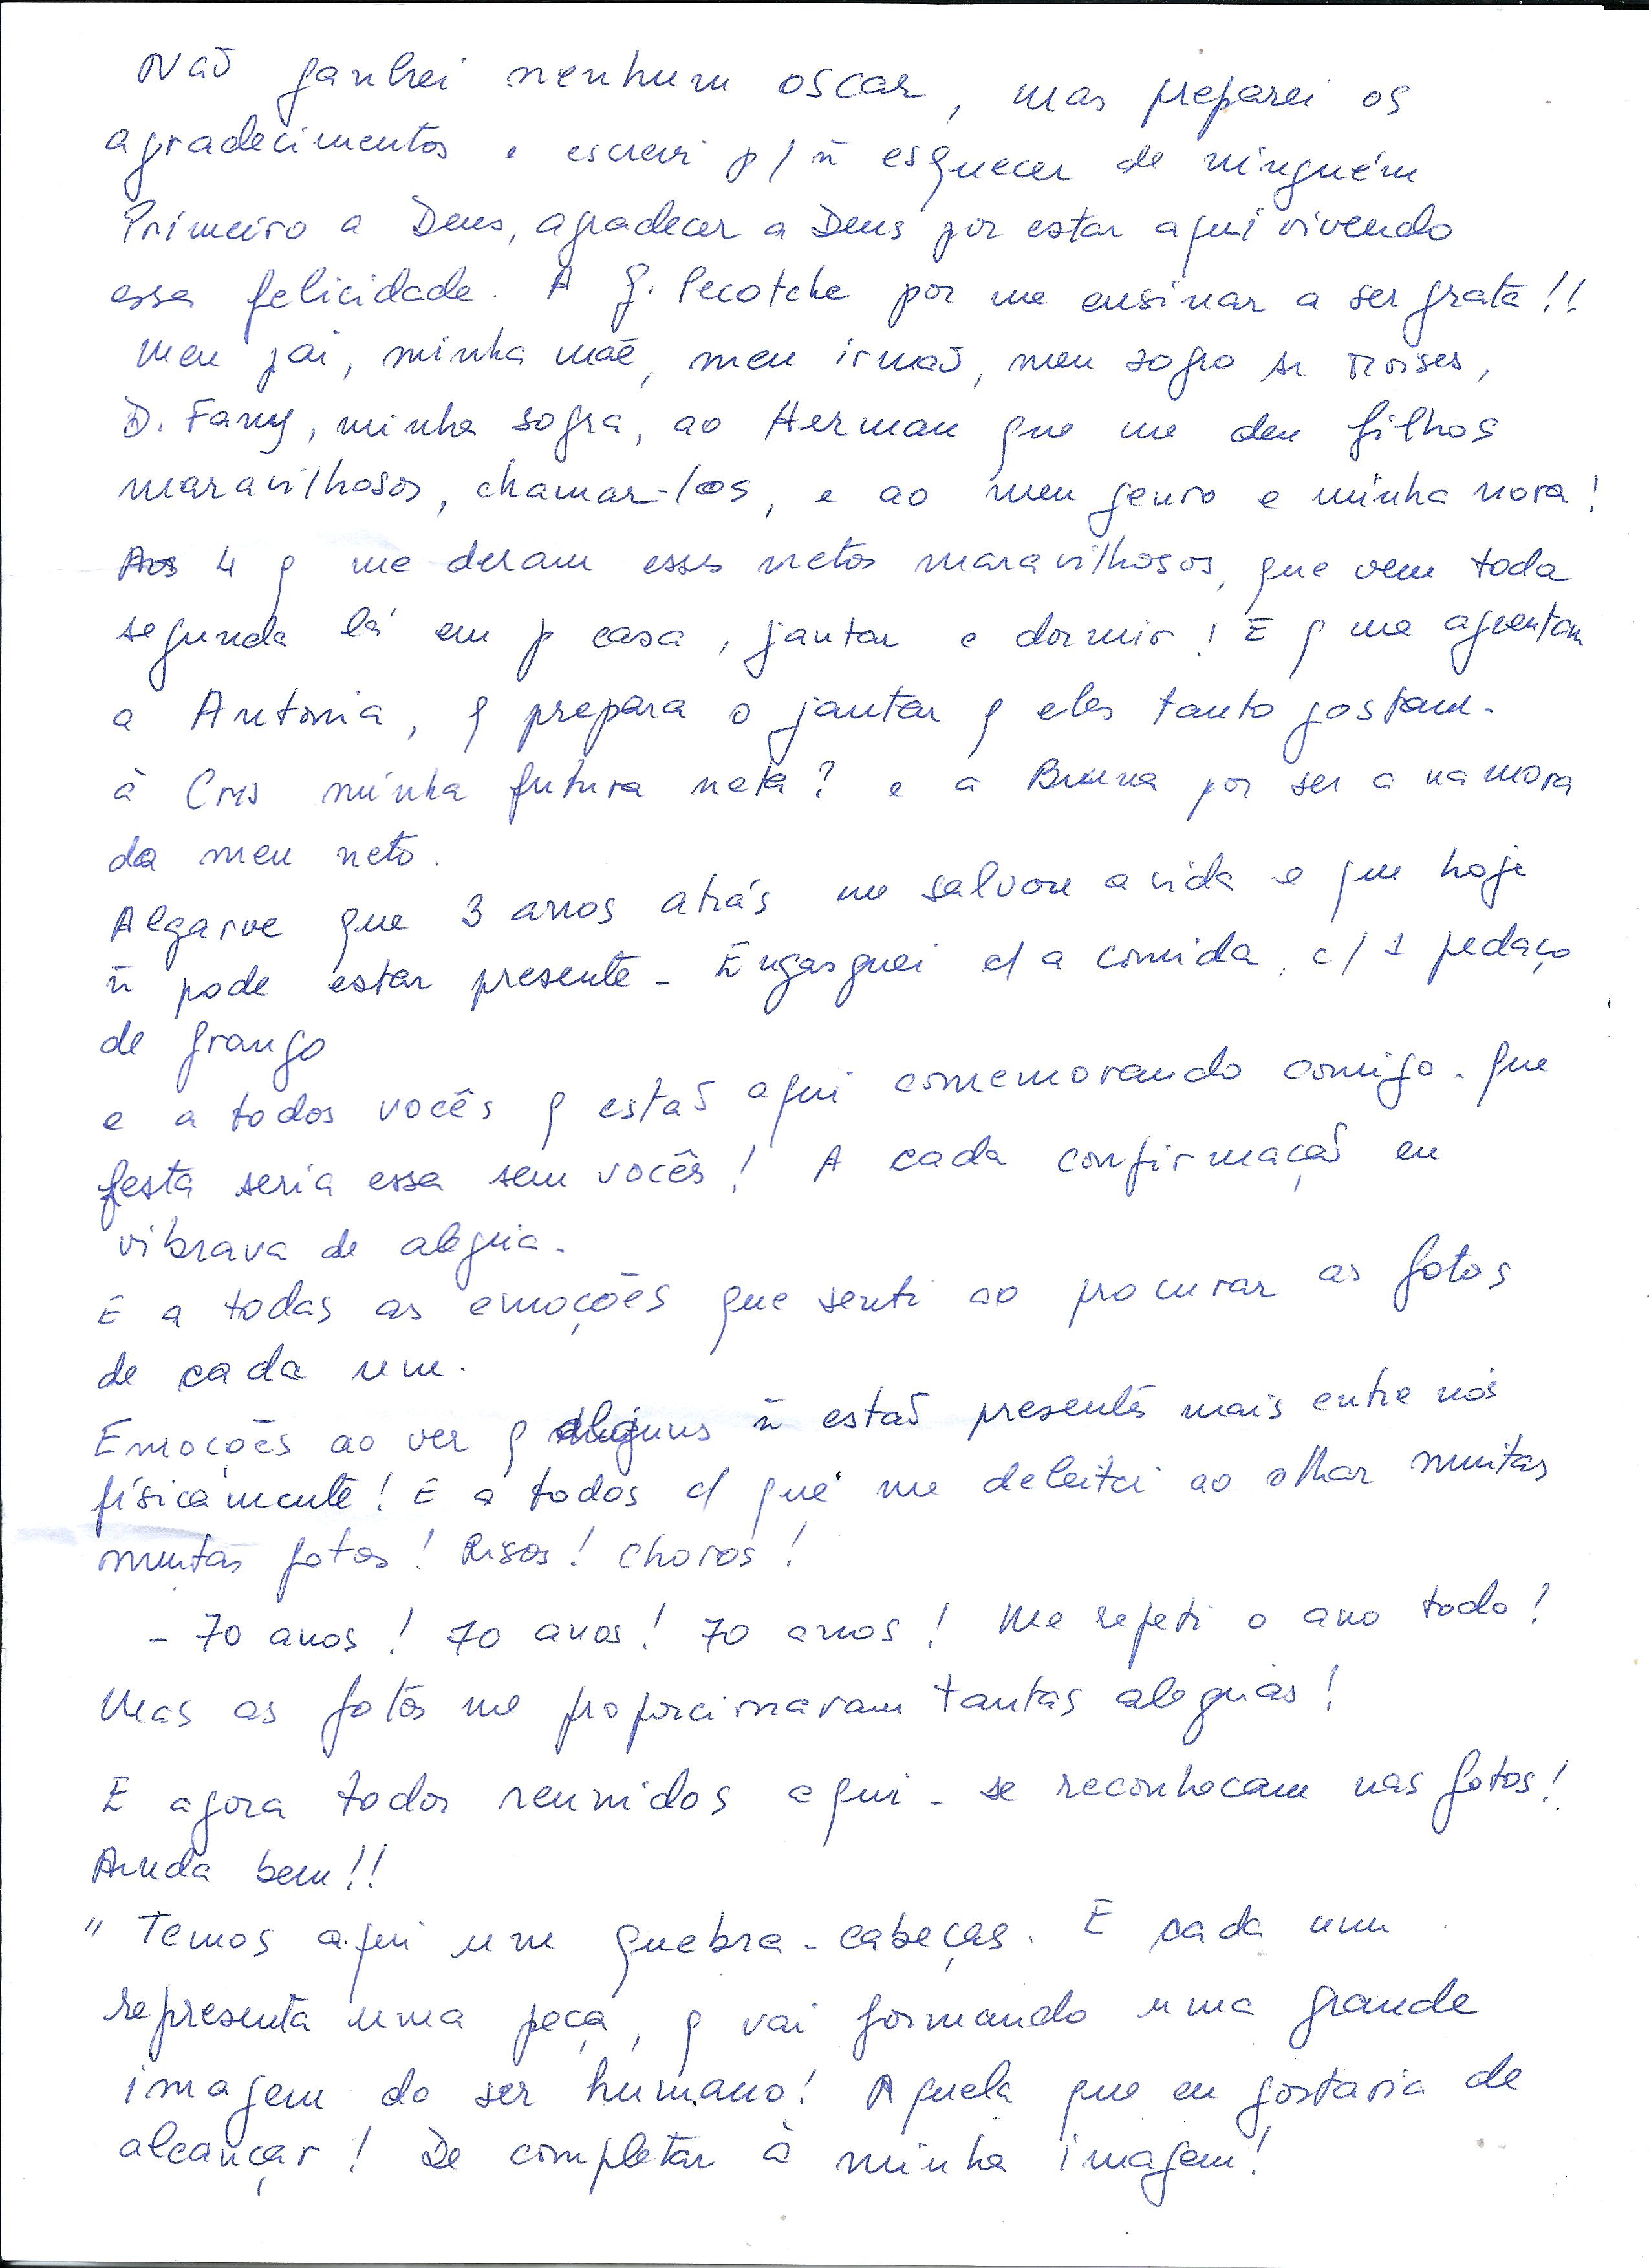 Não ganhei nenhum oscar, mas preparei os
agradecimentos e escrevi p/ ñ esquecer de ninguém
Primeiro a Deus, agradecer a Deus por estar aqui vivendo
essa felicidade. A G. Pecotche por me ensinar a ser grata!!
Meu pai, minha mãe, meu irmão, meu sogro sr Moises,
D. Fany, minha sogra, ao Herman que me deu filhos
maravilhosos, chamar-los, e ao meu genro e minha nora!
Aos 4 q me deram esses netos maravilhosos, que vem toda
segunda lá em casa, jantar e dormir! E q me aguentam
a Antonia, q prepara o jantar q eles tanto gostam.
à Cris minha futura neta? e a Bruna por ser a namora
da meu neto.
Algarve que 3 anos atrás me salvou a vida e que hoje
ñ pode estar presente - Engasguei c/ a comida, c/ 1 pedaço
de frango
e a todos vocês q estão aqui comemorando comigo. que
festa seria essa sem vocês! A cada confirmação eu
vibrava de alegria.
E a todas as emoções que senti ao procurar as fotos
de cada um.
Emoções ao ver q alguns ñ estão presentes mais entre nós
físicamente! E a todos c/ que me deleitei ao olhar muitas
muitas fotos! Risos! choros!
- 70 anos! 70 anos! 70 anos! Me repeti o ano todo!
Mas as fotos me proporcionaram tantas alegrias!
E agora todos reunidos aqui - se reconhocam nas fotos!
Ainda bem!!
" Temos aqui um quebra-cabeças. E cada um
representa uma peça, q vai formando uma grande
imagem do ser humano! Aquela que eu gostaria de
alcançar! De completar à minha imagem!